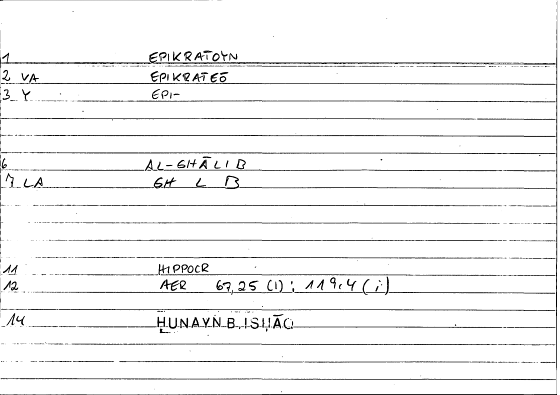 1 EPIKRATOYN
2 VA EPIKRATEŌ
3 Y EPI-
6 AL-GHĀLIB
7 LA GH L B
11 HIPPOCR
12 AER 67,25 (1) : 119,4 (i)
14 ḤUNAYN B. ISḤĀQ